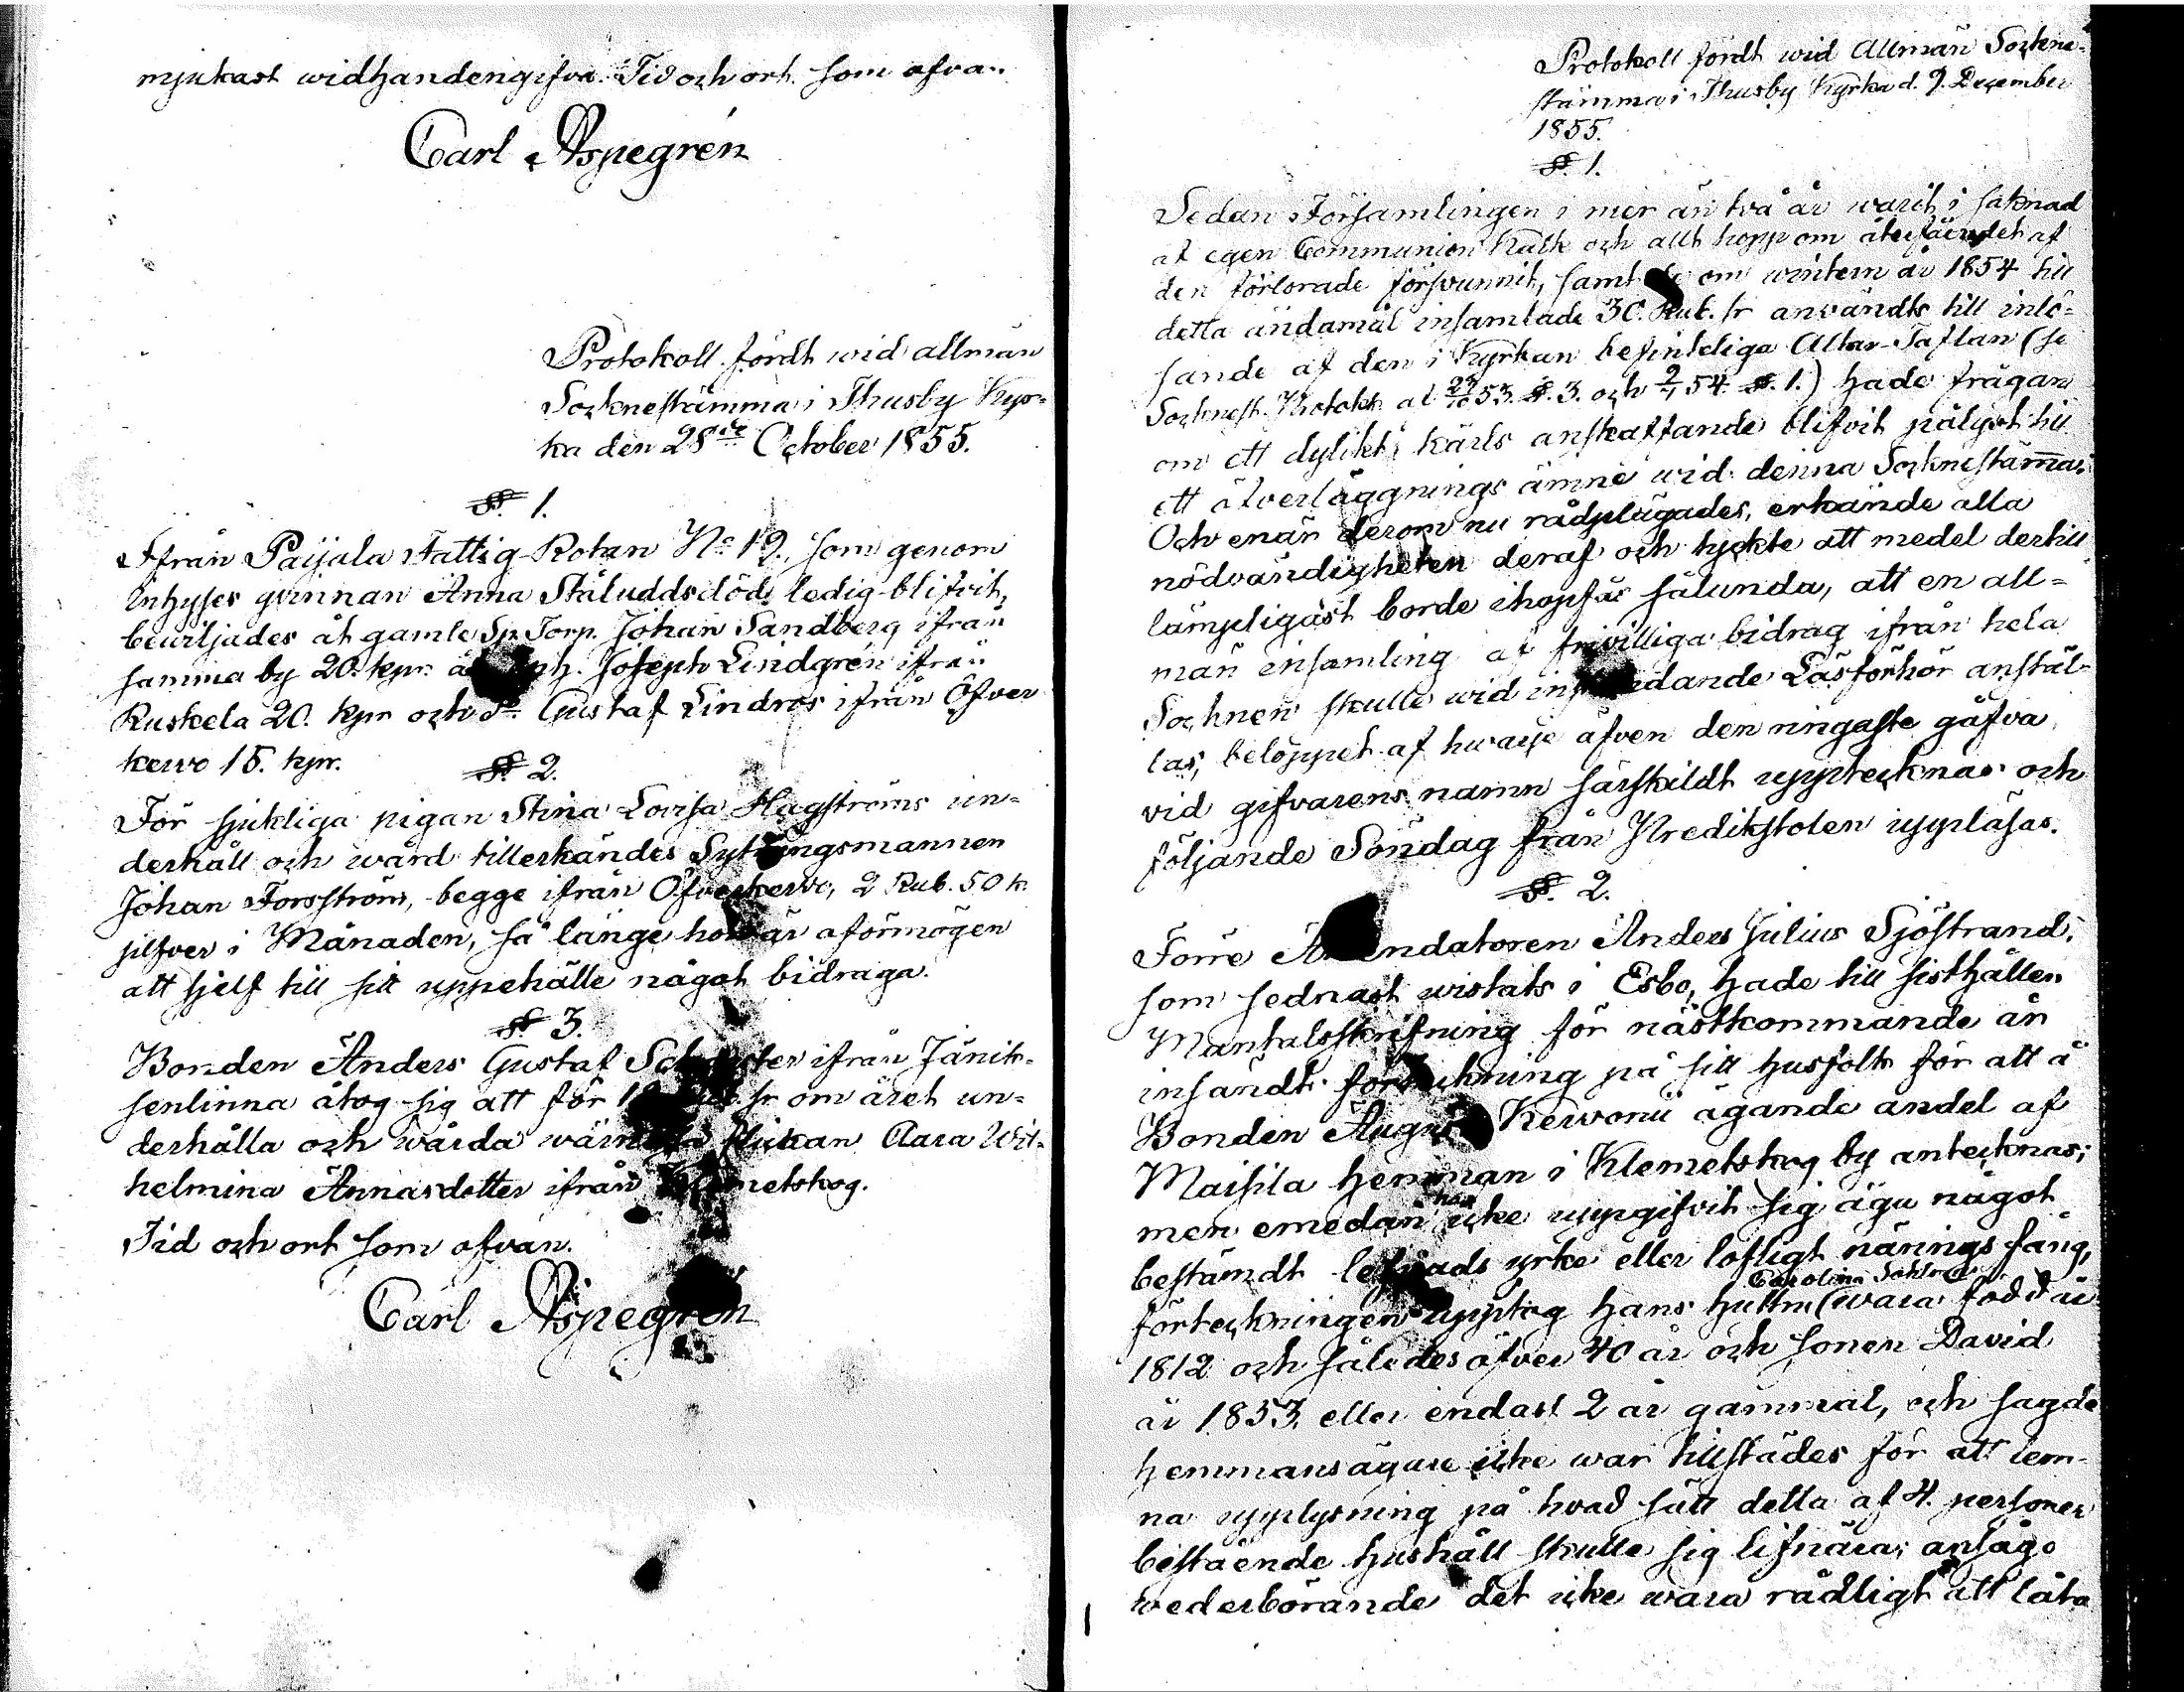 mjukast widhandengifva. Tid och ort som ofvan.
Carl Aspegrén
Protokoll fördt wid allmän
Socknestämma i Thusby Kyr-
ka den 28de October 1855.
§. 1.
Ifrån Paijala Fattig-Rotan No 19, som genom
Inhyses qvinnan Anna Ståludds död ledig blifvit,
bewiljades åt gamle Sp. Torp. Johan Sandberg ifrån
samma by 20. kpr. Joseph Lindgrén ifrån
Ruskela 20. kpr och Sn Gustaf Lindros ifrån Öfver
kervo 15. kpr.
§. 2.
För sjukliga pigan Stina Lovisa Hagströms un-
derhåll och wård tillerkändes Sytningsmannen
Johan Forsström, begge ifrån Öfverkervo, 2 Rub. 50 k.
silfver i Månaden, så länge hon är oförmögen
att sjelf till sitt uppehälle något bidraga.
§ 3.
Bonden Anders Gustaf ifrån Jänik-
senlinna åtog sig att för sr om året un-
derhålla och wårda wärnlösa flickan Clara Wil-
helmina Annasdotter ifrån Klemetskog.
Tid och ort som ofvan.
Carl Aspegrén
Protokoll fördt wid Allmän Sockne-
stämma i Thusby Kyrka d. 9. December
1855.
§. 1.
Sedan Församlingen i mer än två år warit i saknad
af egen Communion Kalk och allt hopp om återfåendet af
den förlorade försvunnit, samt de om wintern år 1854 till
detta ändamål insamlade 30. Rub. sr användts till inlö-
sande af den i Kyrkan befintliga Altar-Taflan (se
Socknest. Protok. af 23/10 53. §. 3. och 54. §. 1.) hade frågan
om ett dylikt kärls anskaffande blifvit pålyst till
ett öfverläggnings ämne wid denna Socknestämma.
Och enär derom nu rådplägades, erkände alla
nödvändigheten deraf och tyckte att medel dertill
lämpligast borde ihopfås sålunda, att en all-
män insamling af frivilliga bidrag ifrån hela
Socknen skulle wid instundande Läsförhör anstäl-
las, beloppet af hwarje äfven den ringaste gåfva
vid gifvarens namn särskildt upptecknas och
följande Söndag från Predikstolen uppläsas.
§. 2.
Förre Arrendatoren Anders Julius Sjöstrand,
som sednast wistats i Esbo, hade till sisthållen
Mantalsskrifning för nästkommande år
insändt förteckning på sitt husfolk för att å
Bonden August Kervonii ägande andel af
Maisila hemman i Klemetskog by antecknas;
men emedan han icke uppgifvit sig äga något
bestämdt lefnads yrke eller lofligt närings fång,
förteckningen upptog hans hustru Carolina (wara född år
1812 och således öfver 40 år och sonen David
år 1853, eller endast 2 år gammal, och sagde
hemmansägare icke war tillstädes för att lem-
na upplysning på hvad sätt detta af 4. personer
bestående hushåll skulle sig lifnära; ansågo
wederbörande det icke wara rådligt att låta